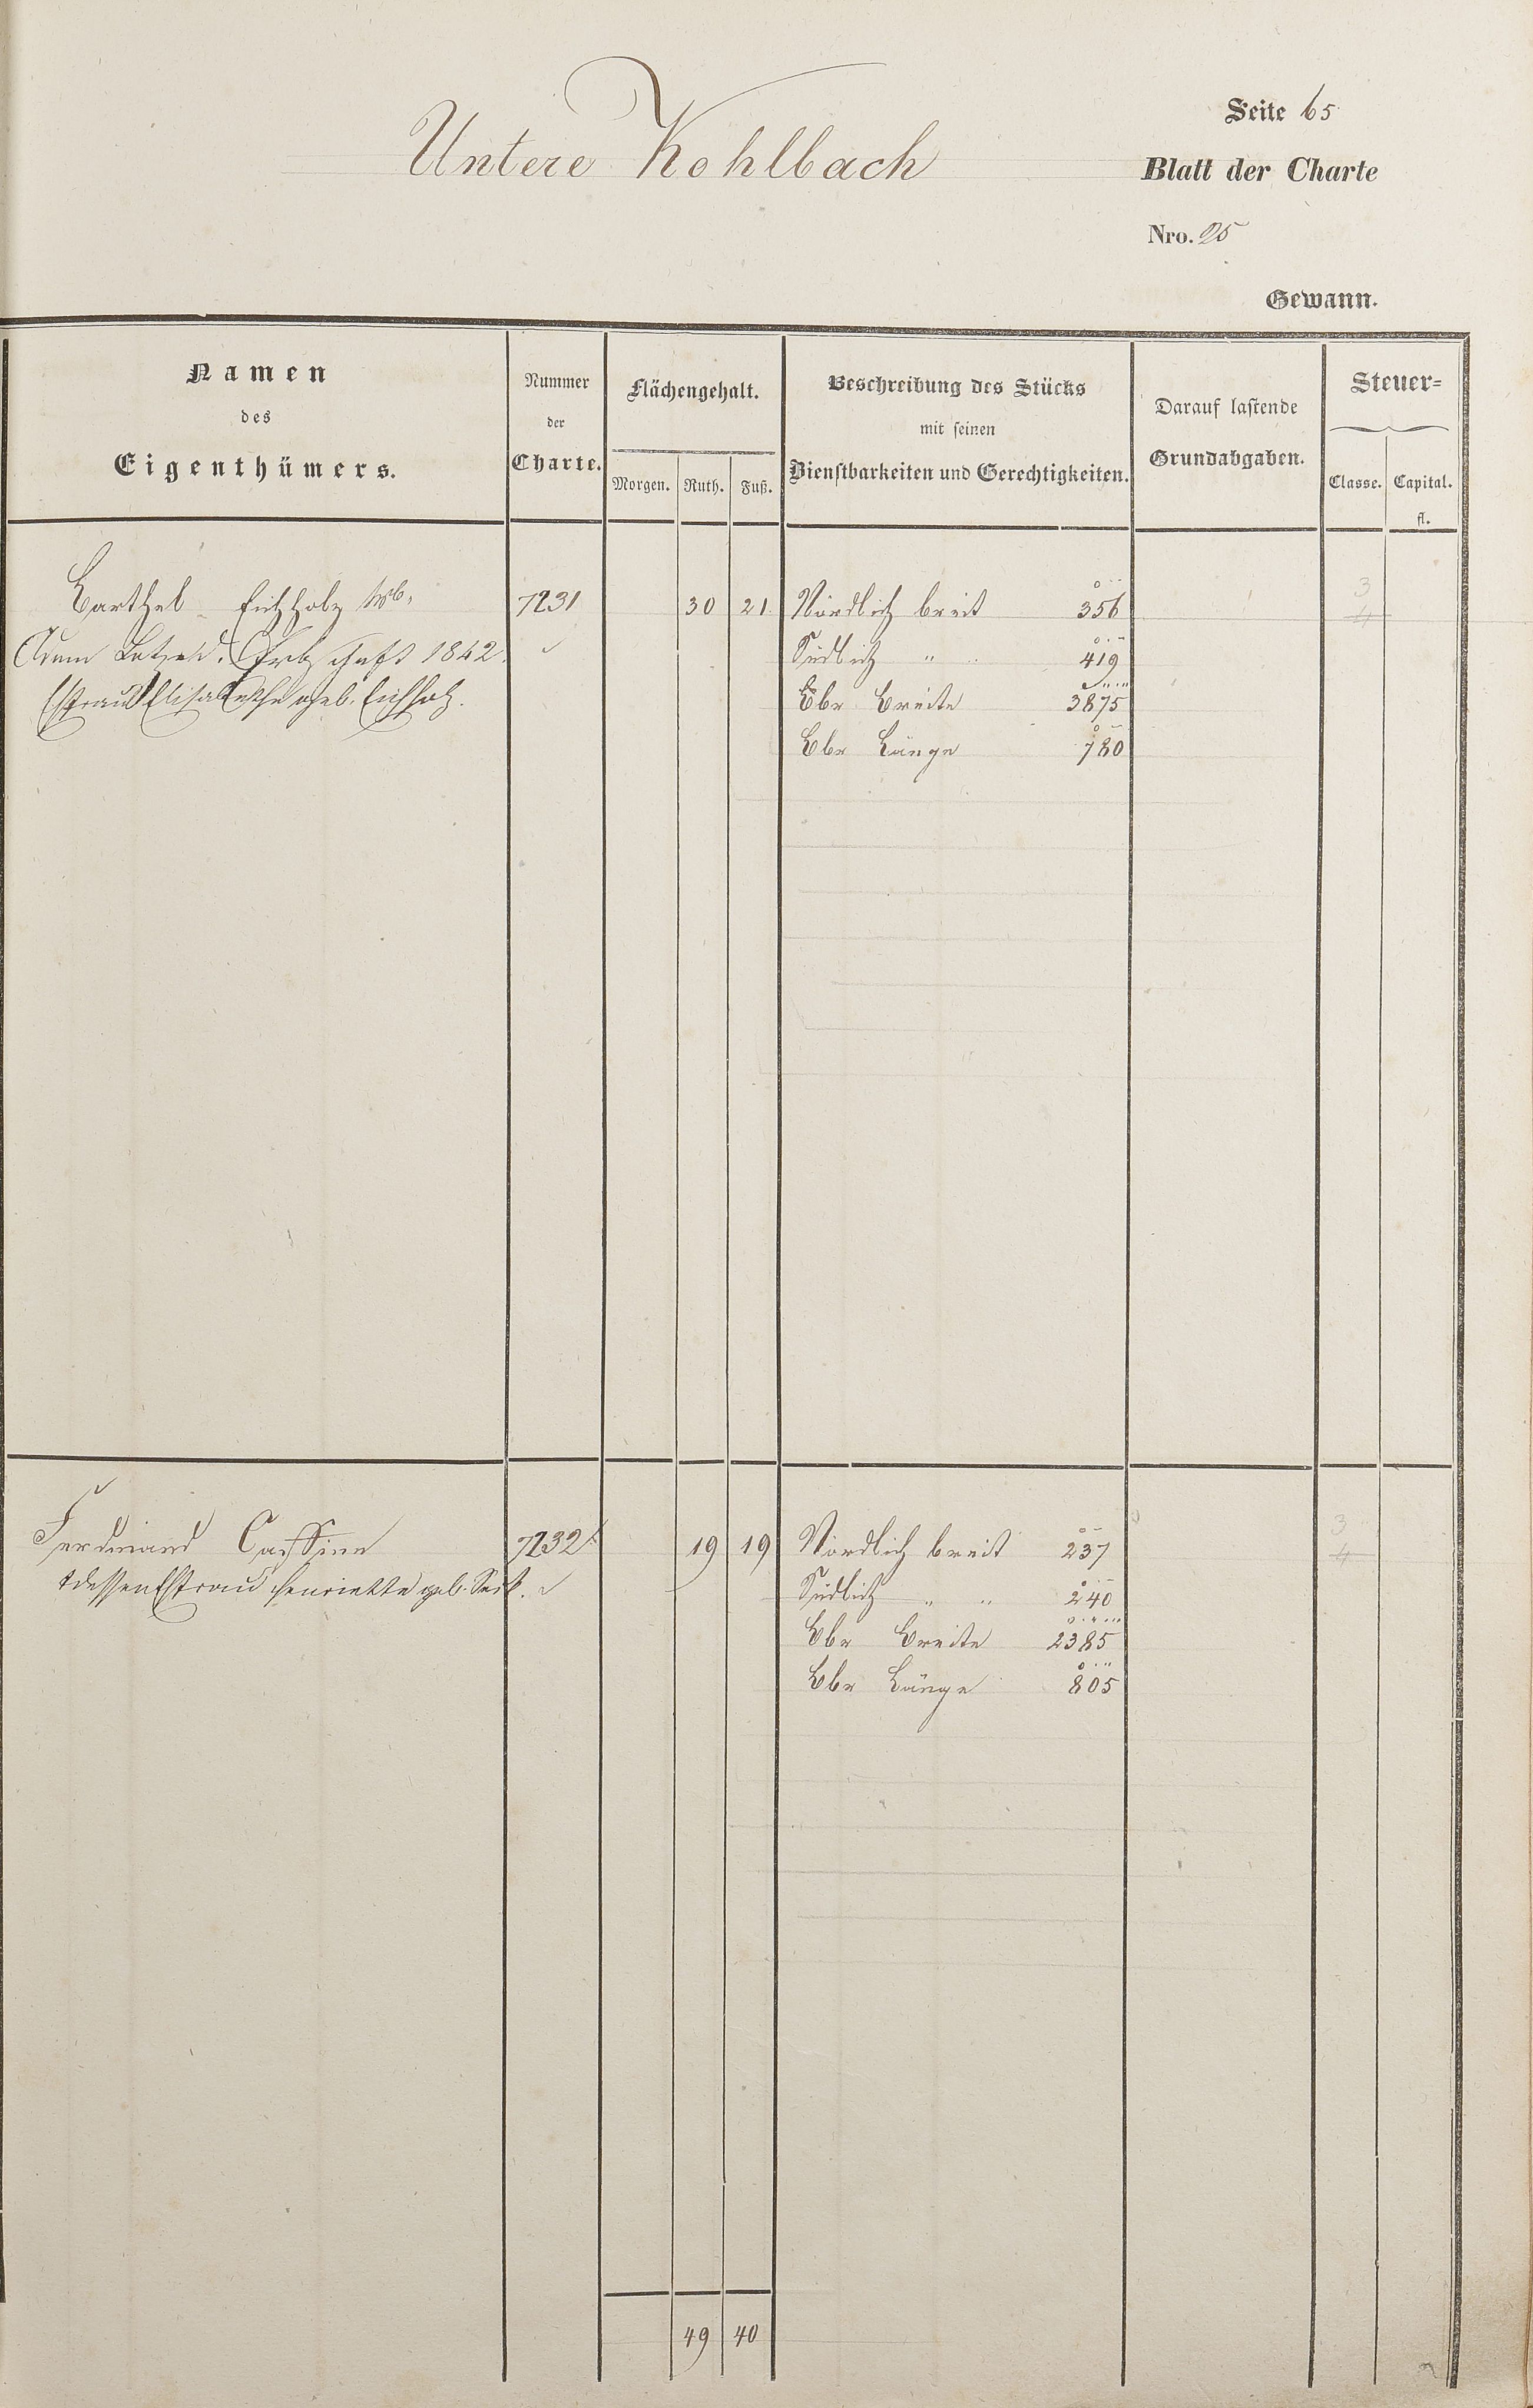 Untere Kohlbach
Seite 65
Blatt der Charte
Nro. 25
Gewann.
Namen
des
Eigenthümers.
Nummer
der
Charte.
Flächengehalt.
Morgen. Ruth. Fuß.
Beschreibung des Stücks
mit seinen
Dienstbarkeiten und Gerechtigkeiten.
Darauf lastende
Grundabgaben.
Steuer=
Classe. Capital.
fl.
Barthel Eichholz Wb. 7231 30 21 Nördlich breit 356 3
4
Adam Erbschaft 1842. Südlich " 419
Ehfrau Elisabethe geb. Eichholz. Ebr Breite 3875
Ebr Länge 780
Ferdinand 7232 19 19 Nördlich breit 237 3
4
+dessen Ehfrau Henriette geb. Südlich " " 240
Ebr Breite 2385
Ebr Länge 805
49 40